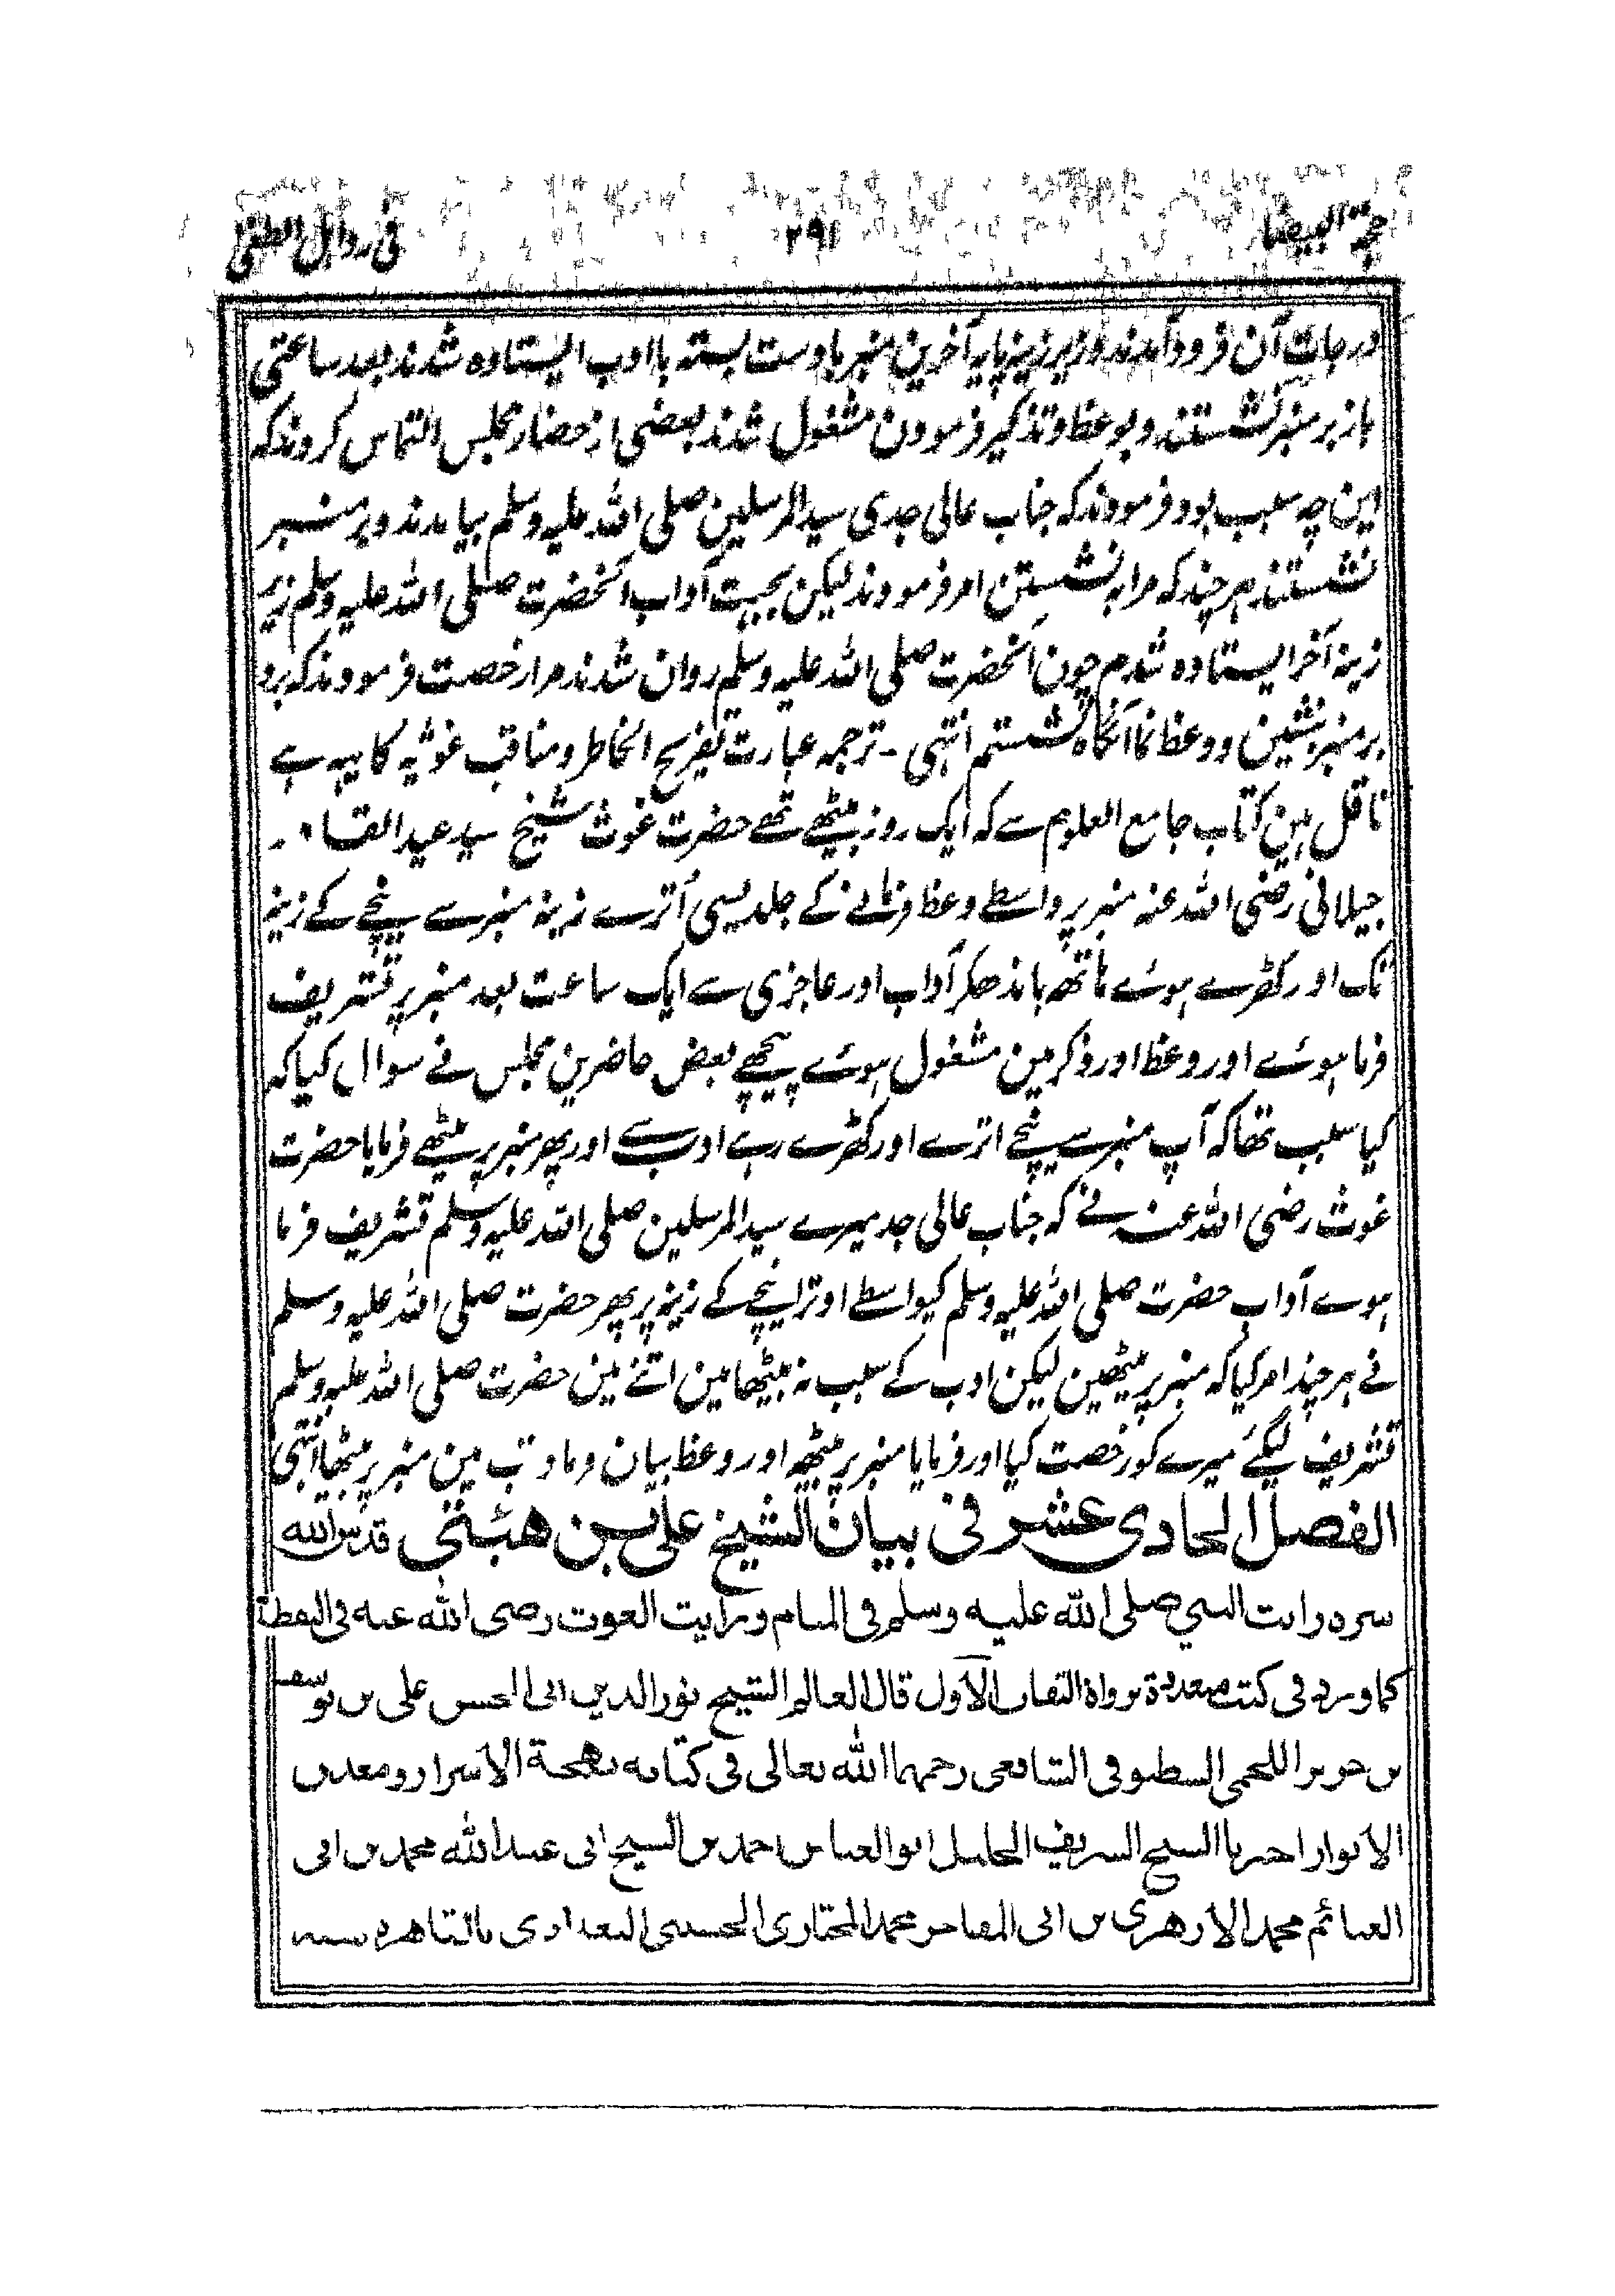 حجة البيضا ۲۹۱ فی رد اہل الطغی
درجات آن فرود آمدند و زیر زینه پایه آخرین منبر با دست بسته با ادب ایستاده شدند بعد ساعتی
باز بر منبر نشستند و بوعظ و تذکیر فرمودن مشغول شدند بعضی از حضار مجلس التماس کردند که
این چه سبب بود فرمودند که جناب عالی جدی سید المرسلین صلی الله علیه وسلم بیامدند و بر منبر
نشستند هر چند که مرا به نشستن امر فرمودند لیکن بجهت آداب آنحضرت صلی الله علیه وسلم زیر
زینه آخر ایستاده شدم چون آنحضرت صلی الله علیه وسلم روان شدند مرا رخصت فرمودند که برو
بر منبر بنشین و وعظ نما آنگاه نشستم انتهی ۔ ترجمه عبارت تفریح الخاطر و مناقب غوثیه کا یہہ ہے
ناقل ہین کتاب جامع العلوم سے کہ ایک روز بیٹھے تھے حضرت غوث شیخ سید عبد القا
جیلانی رضی الله عنه منبر پر واسطے وعظ فرمانے کے جلدیسی اُترے زینہ منبر سے نیچے کے زینہ
تک اور کھڑے ہوئے ہاتھ باندھکر آداب اور عاجزی سے ایک ساعت بعد منبر پر تشریف
فرما ہوئے اور وعظ اور ذکر مین مشغول ہوئے پیچھے بعض حاضرین مجلس نے سوال کیا کہ
کیا سبب تھا کہ آپ منبر سے نیچے اترے اور کھڑے رہے ادب سے اور پھر منبر پر بیٹھے فرمایا حضرت
غوث رضی الله عنه نے کہ جناب عالی جد میرے سید المرسلین صلی الله علیه وسلم تشریف فرما
ہوے آداب حضرت صلی الله علیه وسلم کیواسطے اوترا نیچے کے زینہ پر پھر حضرت صلی الله علیه وسلم
نے ہر چند امر کیا کہ منبر پر بیٹھین لیکن ادب کے سبب نہ بیٹھا مین اتنے مین حضرت صلی الله علیه وسلم
تشریف لیگئے میرے کو رخصت کیا اور فرمایا منبر پر بیٹھہ اور وعظ بیان فرما و تب مین منبر پر بیٹھا انتہی
الفصل الحادی عشر فی بیان الشیخ علی بن هیتی قدس الله
سره رایت النبی صلی الله علیه وسلم فی المنام و رایت الغوث رضی الله عنه فی الیقظة
کما ورد فی کتب متعددة برواة الثقات الأول قال العالم الشیخ نور الدین ابی الحسن علی بن یوسف
بن جریر اللخمی الشطنوفی الشافعی رحمهما الله تعالی فی کتابه بهجة الأسرار و معدن
الأنوار اخبرنا الشیخ الشریف الجلیل ابو العباس احمد بن الشیخ ابی عبد الله محمد بن ابی
الغنائم محمد الأزهری بن ابی المفاخر محمد المختاری الحسینی البغدادی بالقاهره سنه